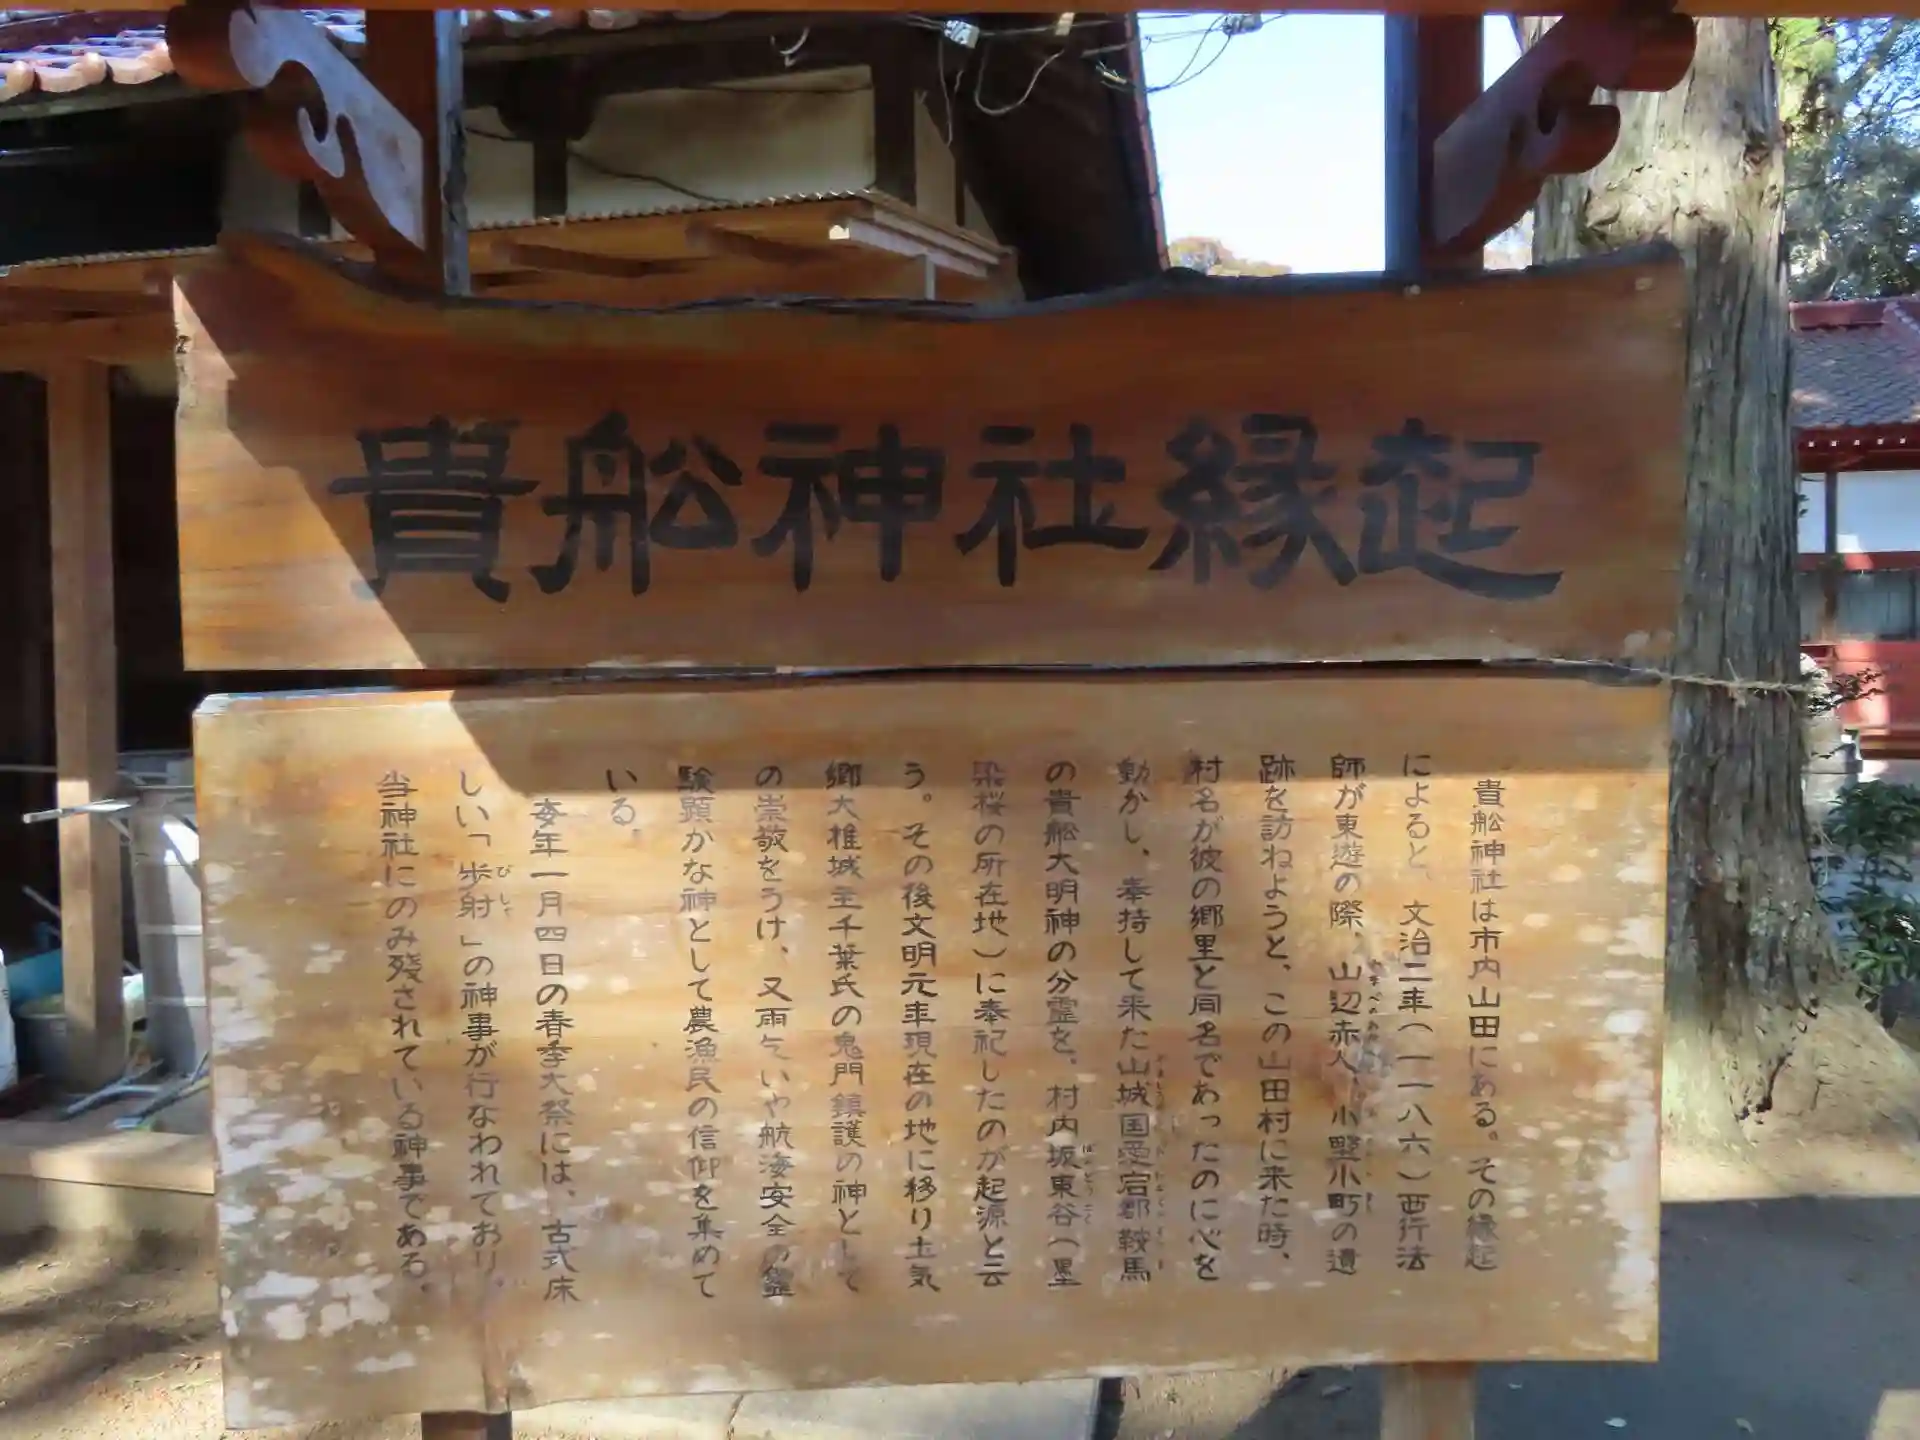 貴船神社縁起
貴船神社は市内山田にある。その縁起
によると、文治二年(一一八六)西行法
師が東遊の際、山辺赤人、小野小町の遺
跡を訪ねようと、この山田村に来た時、
村名が彼の郷里と同名であったのに心を
動かし、奉持して来た山城国愛宕郡鞍馬
の貴船大明神の分霊を、村内坂東谷(墨
染桜の所在地)に奉祀したのが起源と云
う。その後文明元年現在の地に移り土気
郷大椎城主千葉氏の鬼門鎮護の神として
の崇敬をうけ、又雨乞いや航海安全の霊
験顕かな神として農漁民の信仰を集めて
いる。
毎年一月四日の春季大祭には、古式床
しい「歩射」の神事が行なわれており、
びしゃ
当神社にのみ残されている神事である。